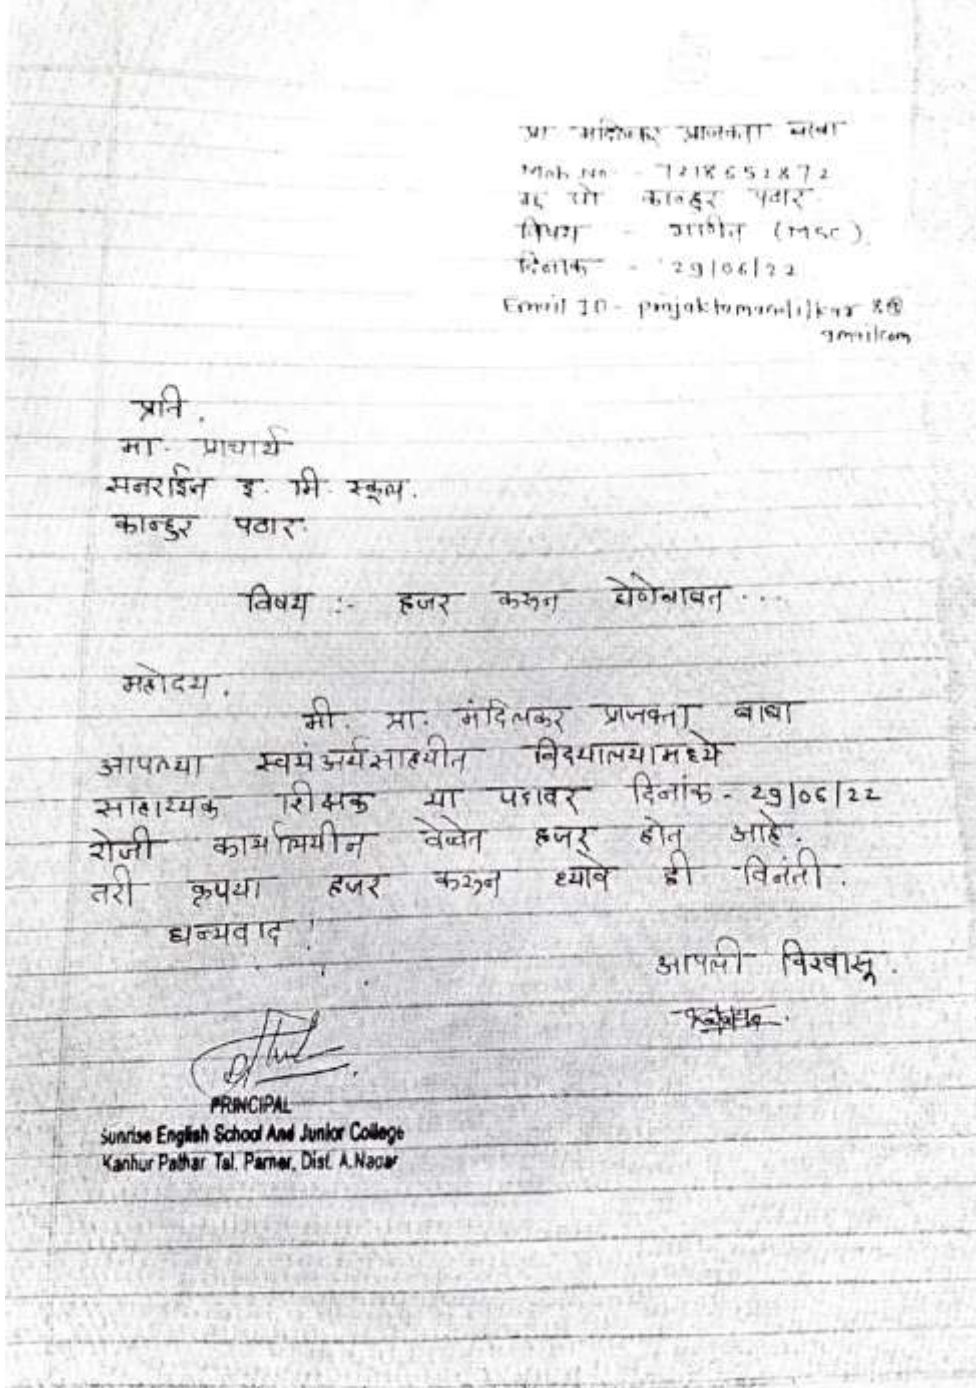 प्रा मंदिलकर प्राजक्ता बाबा
Mob No - 7218652872
मु पो कान्हुर पठार
विषय - गणित (MSC)
दिनांक - 29/06/22
Email ID -
gmailcom
प्रति .
मा. प्राचार्य
सनराईज इ. मी. स्कूल.
कान्हुर पठार.
विषय :- हजर करून घेणेबाबत ...
महोदय .
मी. प्रा. मंदिलकर प्राजक्ता बाबा
आपल्या स्वयंअर्थसाहयीत विदयालयामध्ये
साहाय्यक शिक्षक या पदावर दिनांक - 29/06/22
रोजी कार्यालयीन वेळेत हजर होत आहे.
तरी कृपया हजर करून घ्यावे ही विनंती.
धन्यवाद !
आपली विश्वासू.
PRINCIPAL
Sunrise English School And Junior College
Kanhur Pathar Tal. Parner, Dist. A.Nagar